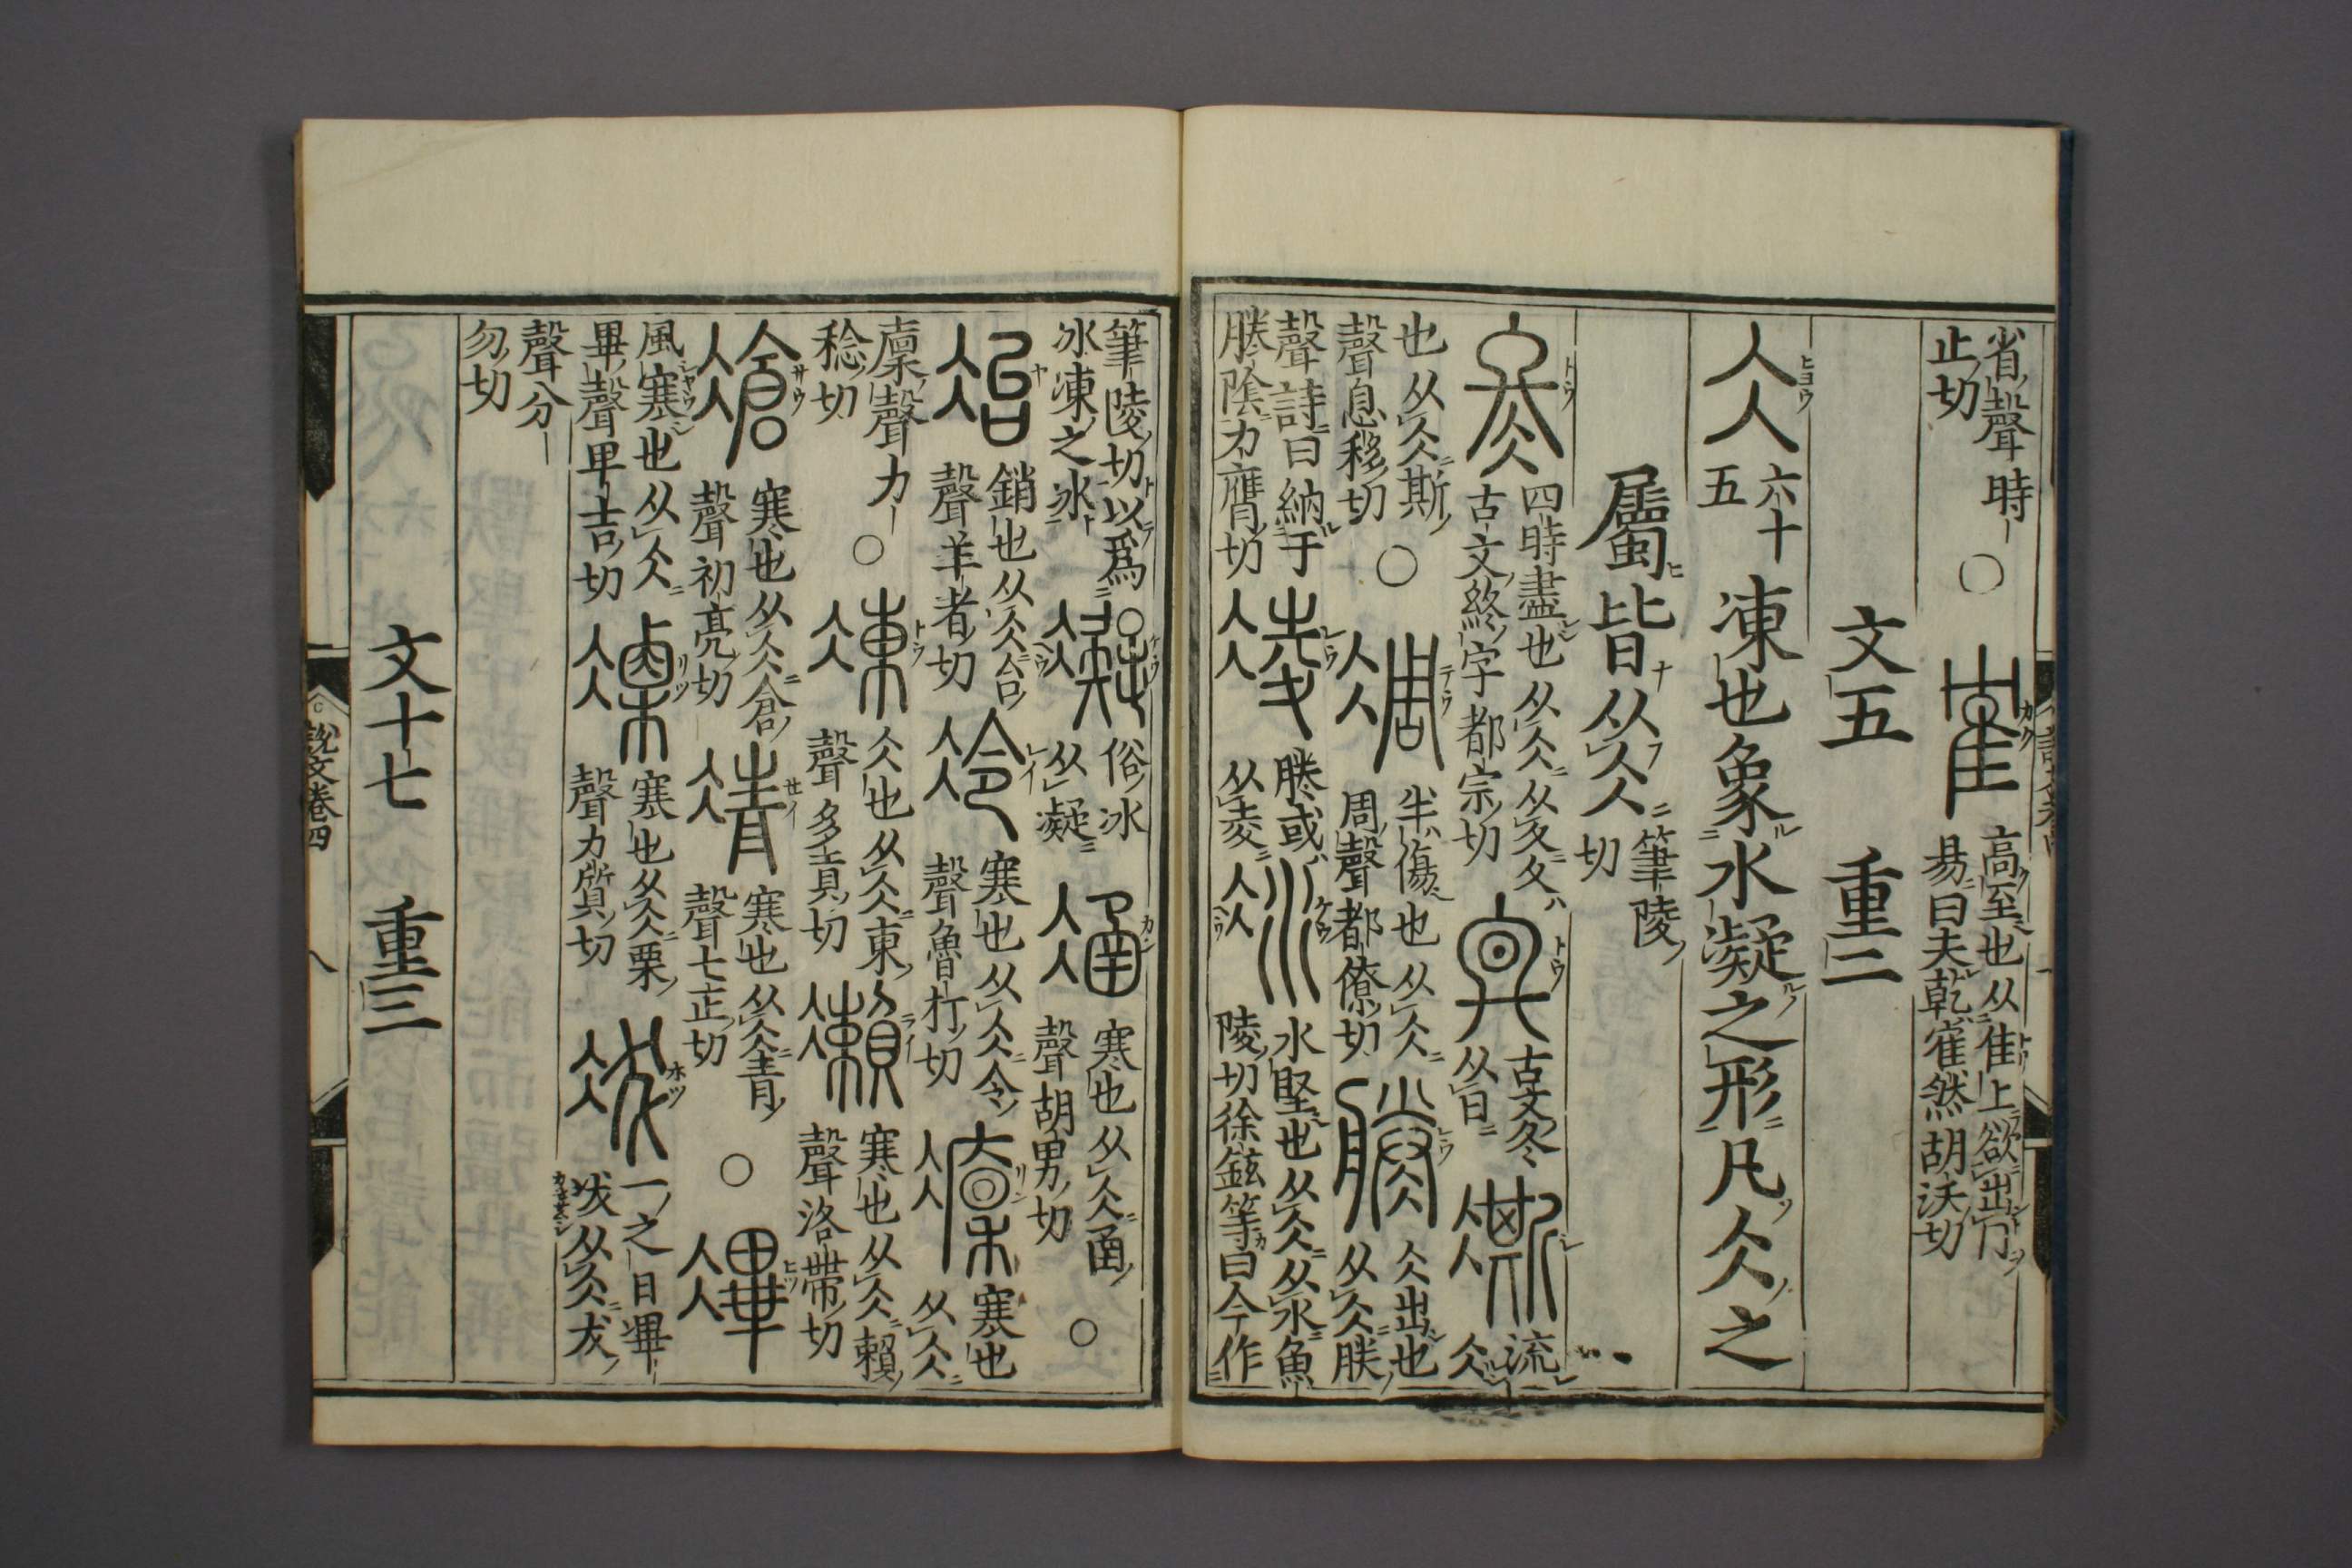 省聲時止切 ○ 隺 高至也从隹上欲出冂易曰夫乾隺然胡沃切
文五 重二
仌 六十五 凍也象水凝之形凡仌之
屬皆从仌 筆陵切
冬 四時盡也从仌从夂夂古文終字都宗切 古文冬从日 凘 流仌
也从仌斯聲息移切 ○ 凋 半傷也从仌周聲都僚切 仌出也从仌朕
聲詩曰納于勝陰力膺切 凌 勝或从夌 冰 水堅也从仌从水魚陵切徐鉉等曰今作
筆陵切以爲冰凍之冰 凝 俗冰从凝 寒也从仌圅聲胡男切 ○
冶 銷也从仌台聲羊者切 冷 寒也从仌令聲魯打切 凜 寒也从仌
廩聲力稔切 ○ 凍 仌也从仌東聲多貢切 寒也从仌賴聲洛帶切
凔 寒也从仌倉聲初亮切 凊 寒也从仌青聲七正切 ○
風寒也从仌畢聲卑吉切 凓 寒也从仌栗聲力質切 冹 一之日畢冹从仌犮
聲分勿切
文十七 重三
說文卷四 八